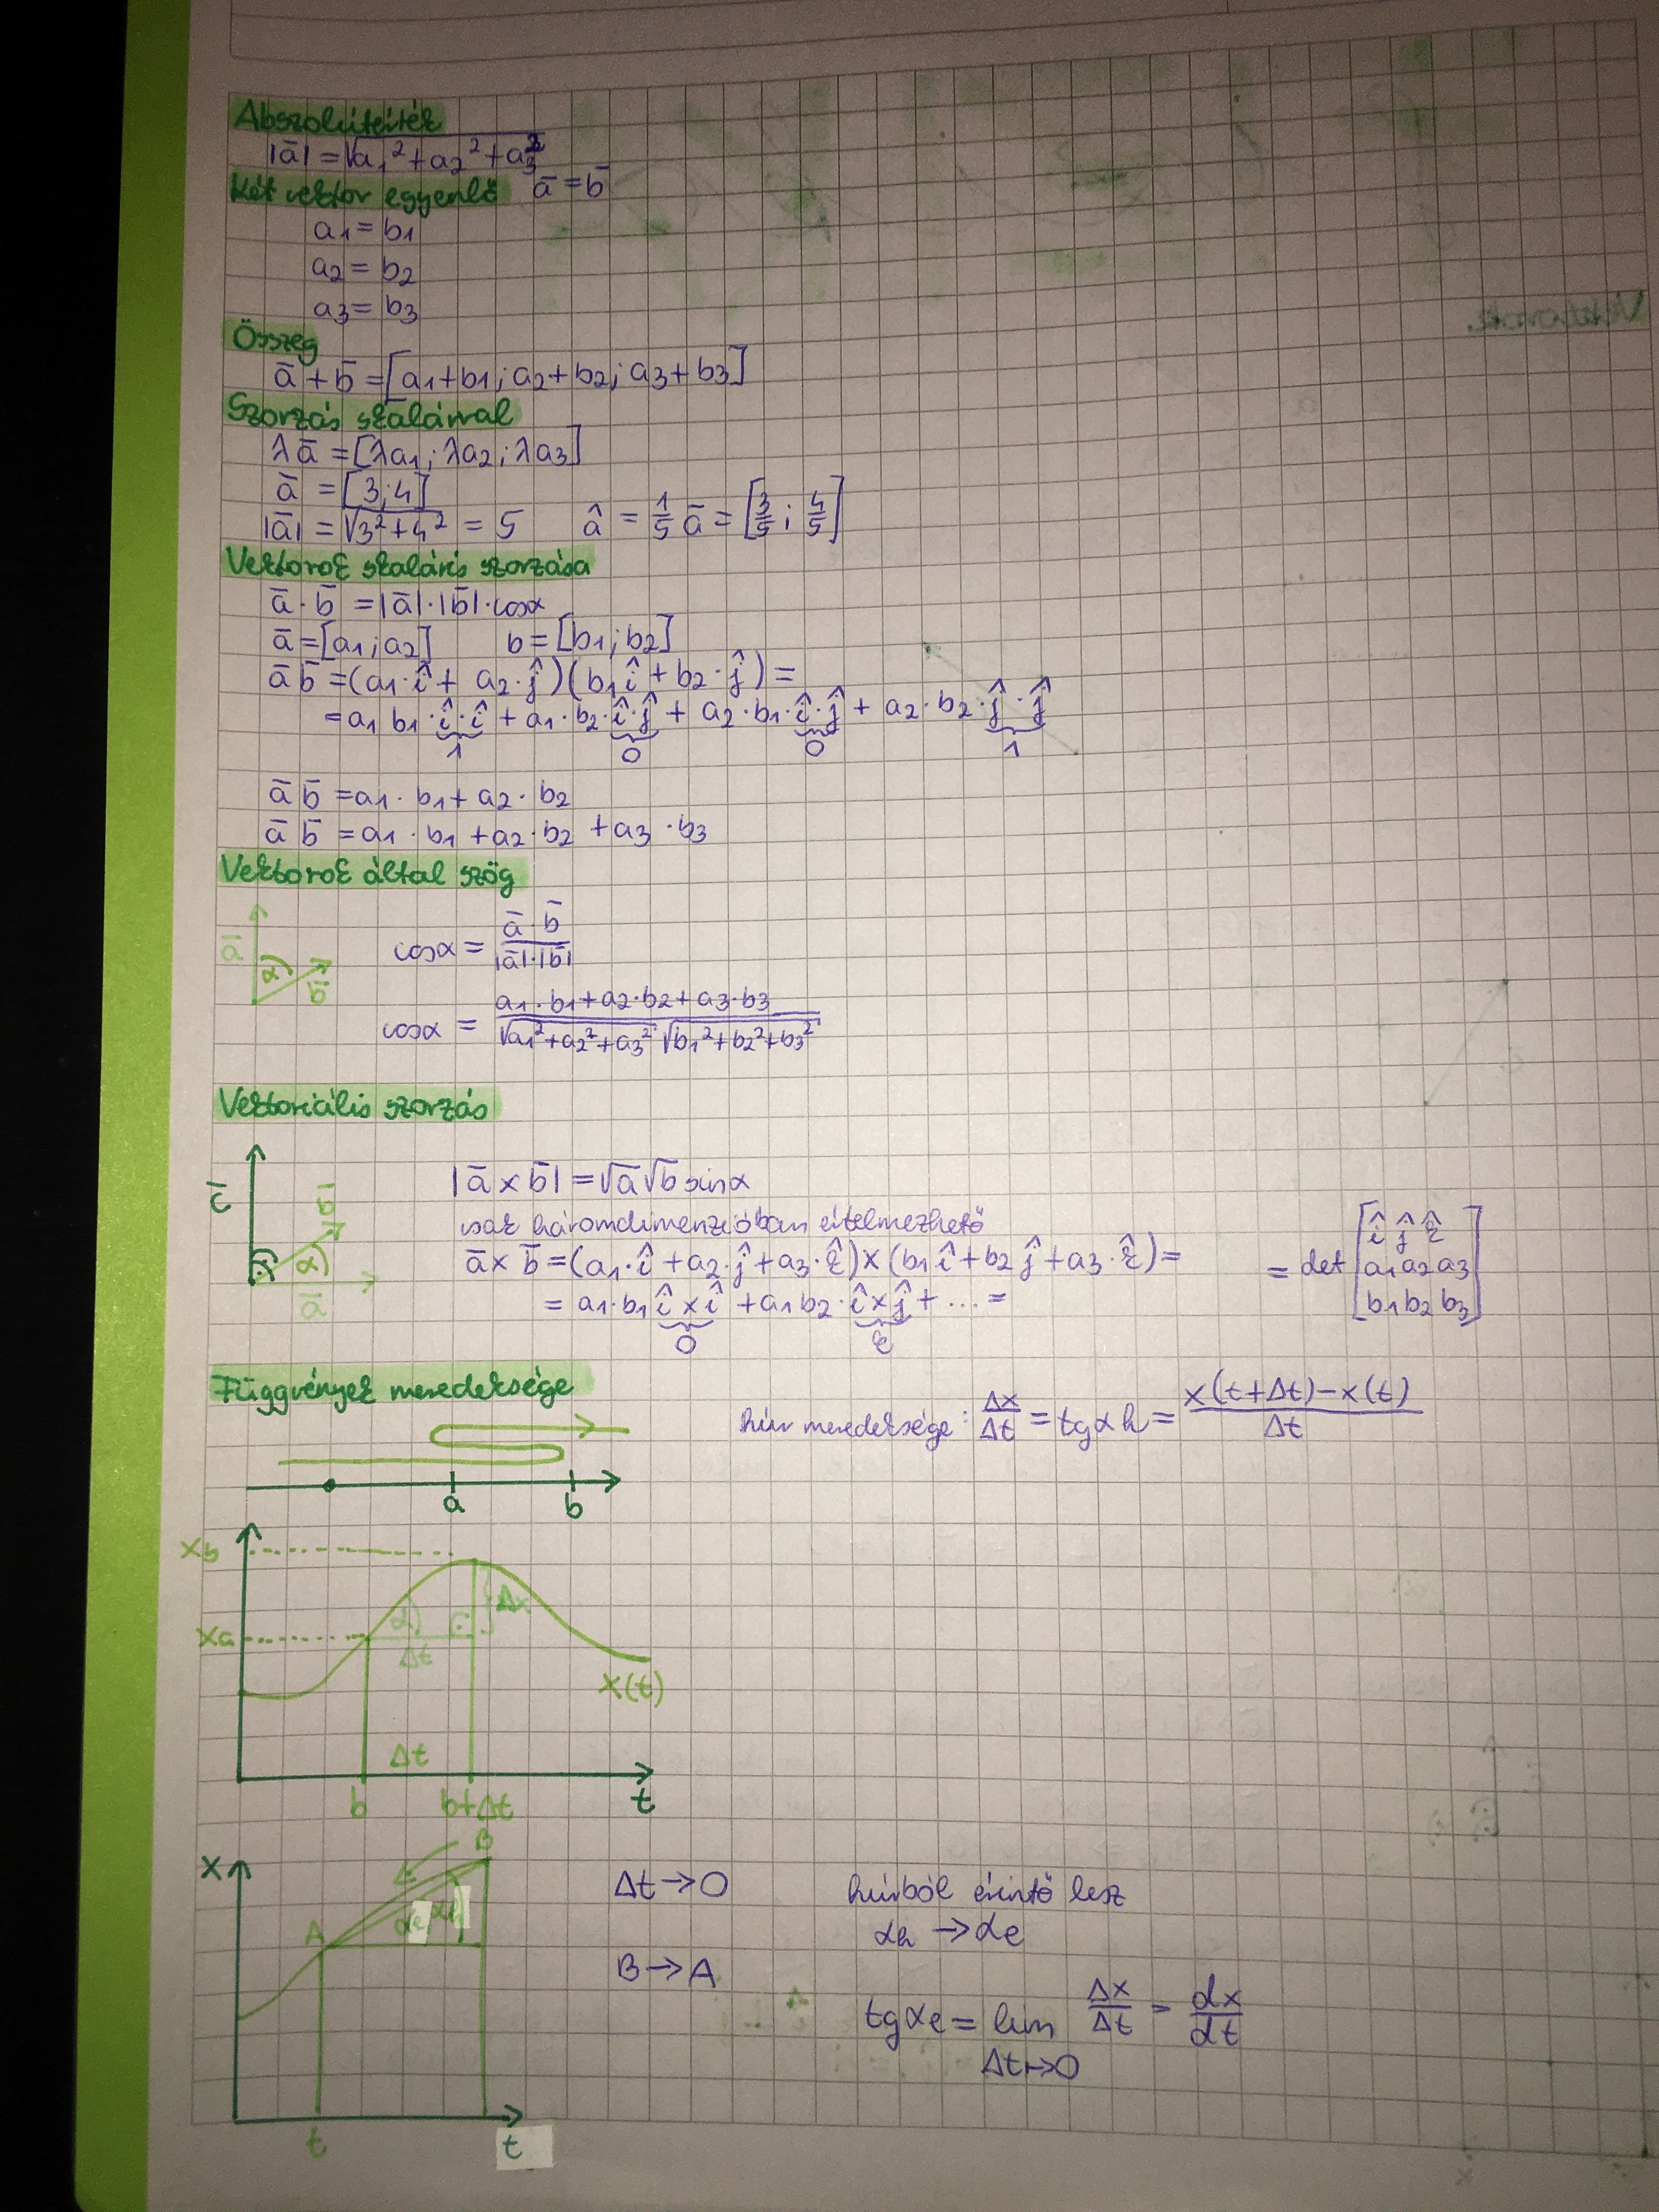 Abszolútérték
|a̅| = √a₁² + a₂² + a₃²
Két vektor egyenlő a̅ = b̅
a1 = b1
a2 = b2
a3 = b3
Összeg
a̅ + b̅ = [a1+b1; a2+b2; a3+b3]
Szorzás skalárral
λa̅ = [λa1; λa2; λa3]
a̅ = [3;4]
|a̅| = √3²+4² = 5 â = 1/5 a̅ = [3/5; 4/5]
Vektorok skaláris szorzása
a̅ · b̅ = |a̅|·|b̅|·cosα
a̅ = [a1; a2] b = [b1; b2]
a̅ b̅ = (a1·î + a2·ĵ)(b1î + b2·ĵ) =
= a1 b1·î·î + a1·b2·î·ĵ + a2·b1·î·ĵ + a2·b2·ĵ·ĵ
1 0 0 1
a̅ b̅ = a1·b1 + a2·b2
a̅ b̅ = a1·b1 + a2·b2 + a3·b3
Vektorok által szög
a̅ α b̅
cosα = a̅ b̅ / |a̅|·|b̅|
cosα = a1·b1+a2·b2+a3·b3 / √a1²+a2²+a3² √b1²+b2²+b3²
Vektoriális szorzás
c̅ b̅ α a̅
|a̅ × b̅| = √a̅ √b̅ sinα
csak háromdimenzióban értelmezhető
a̅ × b̅ = (a1·î + a2·ĵ + a3·k̂) × (b1î + b2ĵ + a3·k̂) = = det [î ĵ k̂
a1 a2 a3
b1 b2 b3]
= a1·b1 î×î + a1b2·î×ĵ + ... =
0 k
Függvények meredeksége
húr meredeksége: Δx/Δt = tgαh = x(t+Δt)−x(t) / Δt
a b
xb
Δx
α
xa
Δt
x(t)
Δt
b b+Δt t
x B
A αe αh
Δt → 0 húrból érintő lesz
αh → αe
B → A
tgαe = lim Δx/Δt = dx/dt
Δt→0
t t